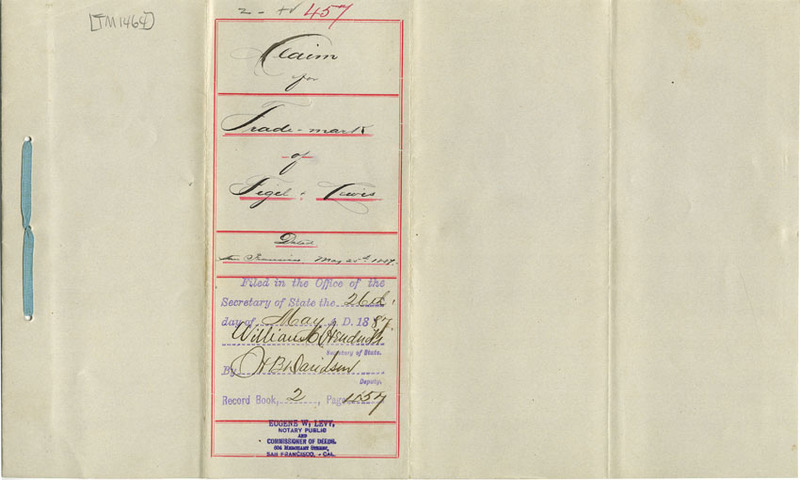 [TM1464]
2 - 457
Claim
for
Trade-mark
of
Figel &
Dated
San Francisco May 25th, 1887.
Filed in the Office of the
Secretary of State the 26th
day of May A. D. 1887.
William C Hendricks
Secretary of State.
By H B Davidson
Deputy.
Record Book, 2, Page 457
EUGENE W. LEVY,
NOTARY PUBLIC
AND
COMMISSIONER OF DEEDS.
STREET,
SAN FRANCISCO, - CAL.